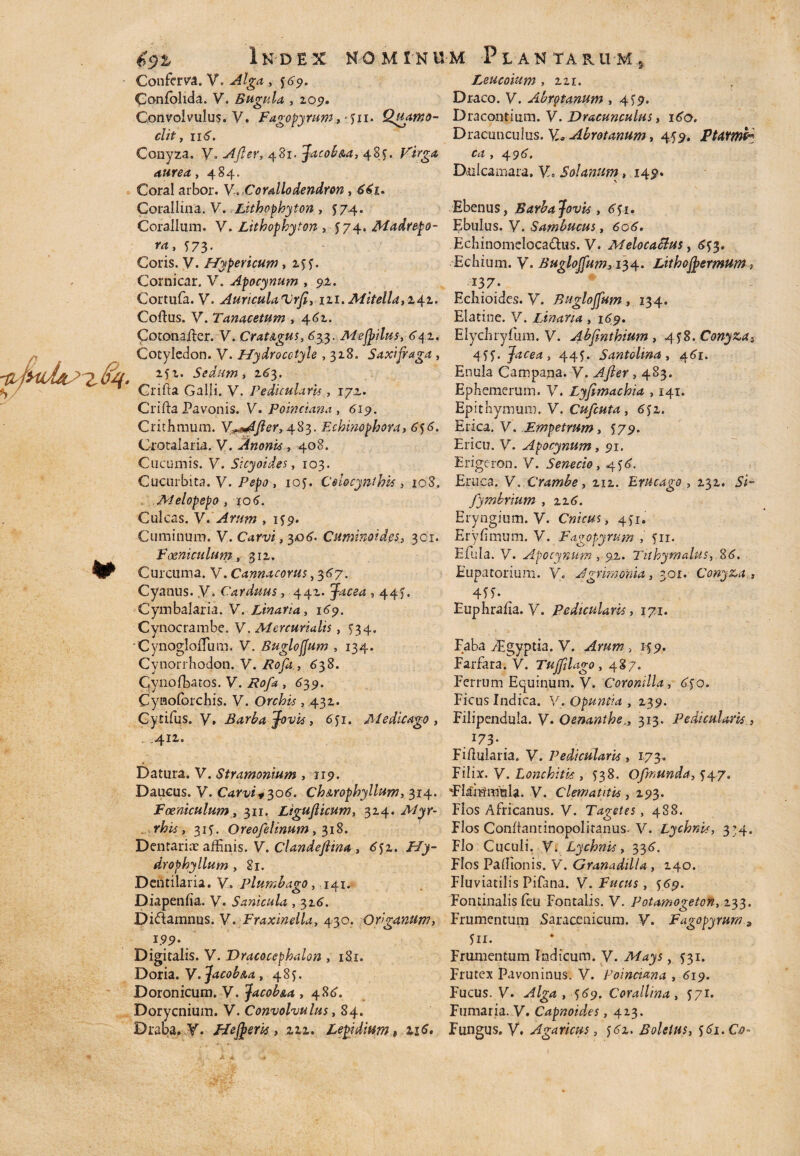 692 INDEX NOMINUM PLANTARUM,
Conferva. V. Alga, 569.
Conſolida. V. Bugula, 209.
Convolvulus. V. Fagopyrum, 511. Quamo-
clit, 116.
Conyza. V. Aſter, 481. Jacobæa, 485. Virga
aurea, 484.
Coral arbor. V. Corallodendron, 661.
Corallina. V. Lithophyton, 574.
Corallum. V. Lithophyton, 574. Madrepo-
ra, 573.
Coris. V. Hypericum, 255.
Cornicar. V. Apocynum, 92.
Cortuſa. V. Auricula Urſi, 121. Mitella, 242.
Coſtus. V. Tanacetum, 461.
Cotonaſter. V. Cratægus, 633. Meſpilus, 642.
Cotyledon. V. Hydrocotyle, 328. Saxifraga,
252. Sedum, 263.
264.
Criſta Galli. V. Pedicularis, 172.
Criſta Pavonis. V. Poinciana, 619.
Crithmum. V. Aſter, 483. Echinophora, 656.
Crotalaria. V. Anonis, 408.
Cucumis. V. Sicyoides, 103.
Cucurbita. V. Pepo, 105. Colocynthis, 108.
Melopepo, 106.
Culcas. V. Arum, 159.
Cuminum. V. Carvi, 306. Cuminoides, 301.
Fœniculum, 312.
Curcuma. V. Cannacorus, 367.
Cyanus. V. Carduus, 442. Jacea, 445.
Cymbalaria. V. Linaria, 169.
Cynocrambe. V. Mercurialis, 534.
Cynogloſſum. V. Bugloſſum, 134.
Cynorrhodon. V. Roſa, 638.
Cynoſbatos. V. Roſa, 639.
Cynoſorchis. V. Orchis, 432.
Cytiſus. V. Barba Jovis, 651. Medicago,
412.
Datura. V. Stramonium, 119.
Daucus. V. Carvi, 306. Chærophyllum, 314.
Fœniculum, 311. Liguſticum, 324. Myr-
rhis, 315. Oreoſelinum, 318.
Dentariæ affinis. V. Clandeſtina, 652. Hy-
drophyllum, 81.
Dentilaria. V. Plumbago, 141.
Diapenſia. V. Sanicula, 326.
Dictamnus. V. Fraxinella, 430. Origanum,
199.
Digitalis. V. Dracocephalon, 181.
Doria. V. Jacobæa, 485.
Doronicum. V. Jacobæa, 486.
Dorycnium. V. Convolvulus, 84.
Draba. V. Heſperis, 222. Lepidium, 216.
Leucoium, 221.
Draco. V. Abrotanum, 459.
Dracontium. V. Dracunculus, 160.
Dracunculus. V. Abrotanum, 459. Ptarmi-
ca, 496.
Dulcamara. V. Solanum, 149.
Ebenus, Barba Jovis, 651.
Ebulus. V. Sambucus, 606.
Echinomelocactus. V. Melocactus, 653.
Echium. V. Bugloſſum, 134. Lithoſpermum,
137.
Echioides. V. Bugloſſum, 134.
Elatine. V. Linaria, 169.
Elychryſum. V. Abſinthium, 458. Conyza,
455. Jacea, 445. Santolina, 461.
Enula Campana. V. Aſter, 483.
Ephemerum. V. Lyſimachia, 141.
Epithymum. V. Cuſcuta, 652.
Erica. V. Empetrum, 579.
Ericu. V. Apocynum, 91.
Erigeron. V. Senecio, 456.
Eruca. V. Crambe, 212. Erucago, 232. Si-
ſymbrium, 226.
Eryngium. V. Cnicus, 451.
Eryſimum. V. Fagopyrum, 511.
Eſula. V. Apocynum, 92. Tithymalus, 86.
Eupatorium. V. Agrimonia, 301. Conyza,
455.
Euphraſia. V. Pedicularis, 171.
Faba Ægyptia. V. Arum, 159.
Farfara. V. Tuſſilago, 487.
Ferrum Equinum. V. Coronilla, 650.
Ficus Indica. V. Opuntia, 239.
Filipendula. V. Oenanthe, 313. Pedicularis,
173.
Fiſtularia. V. Pedicularis, 173.
Filix. V. Lonchitis, 538. Oſmunda, 547.
Flammula. V. Clematitis, 293.
Flos Africanus. V. Tagetes, 488.
Flos Conſtantinopolitanus. V. Lychnis, 334.
Flo Cuculi. V. Lychnis, 336.
Flos Paſſionis. V. Granadilla, 240.
Fluviatilis Piſana. V. Fucus, 569.
Fontinalis ſeu Fontalis. V. Potamogeton, 233.
Frumentum Saracenicum. V. Fagopyrum,
511.
Frumentum Indicum. V. Mays, 531.
Frutex Pavoninus. V. Poinciana, 619.
Fucus. V. Alga, 569. Corallina, 571.
Fumaria. V. Capnoides, 423.
Fungus. V. Agaricus, 562. Boletus, 561. Co-